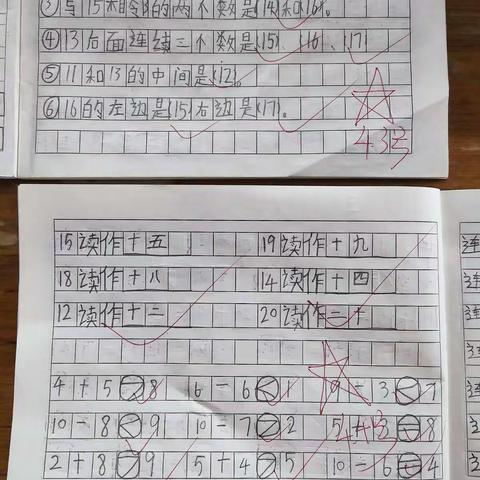 ③与15相邻的两个数是(14)和(16)。
④13后面连续三个数是(15)、(16、(17)
⑤11和13的中间是(12)。
⑥16的左边是(15)右边是(17)。
43号
15读作十五 19读作十九
18读作十八 14读作十四
12读作十二 20读作二十
4+5>8 6-6<1 9-3<7
10-8<9 10-7>2 8
2+8>9 5+4>5 10-6=4